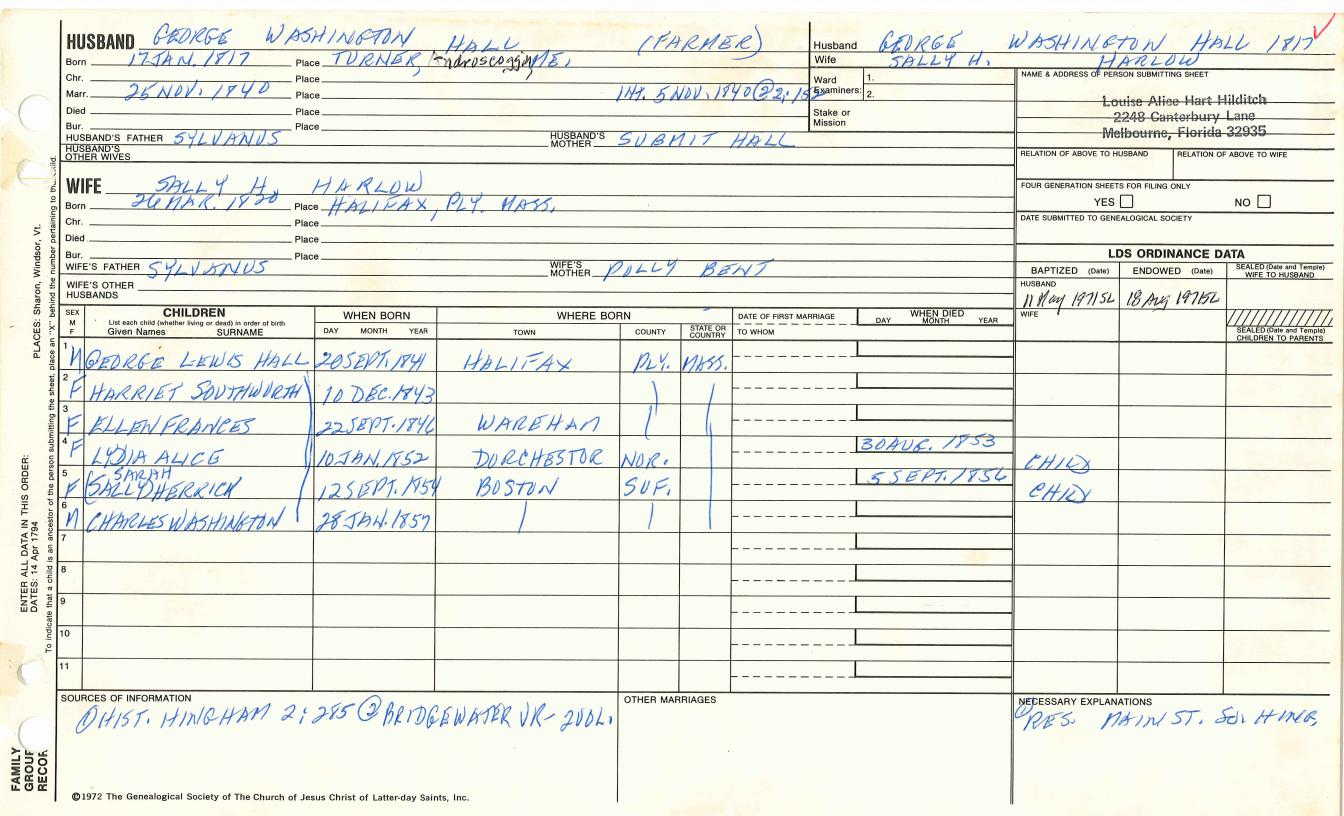 HUSBAND GEORGE WASHINGTON HALL (FARMER)
Born 17 JAN. 1817 Place TURNER, Androscoggin, ME.
Chr. Place
Marr. 25 NOV. 1840 Place Int. 5 NOV. 1840 ② 2:152
Died Place
Bur. Place
HUSBAND'S FATHER SYLVANUS HUSBAND'S MOTHER SUBMIT HALL
HUSBAND'S OTHER WIVES
Husband GEORGE WASHINGTON HALL 1817
Wife SALLY H. HARLOW
Ward Examiners: 1.
2.
Stake or Mission
NAME & ADDRESS OF PERSON SUBMITTING SHEET
Louise Alice Hart Hilditch
2248 Canterbury Lane
Melbourne, Florida 32935
RELATION OF ABOVE TO HUSBAND RELATION OF ABOVE TO WIFE
FOUR GENERATION SHEETS FOR FILING ONLY
YES NO
DATE SUBMITTED TO GENEALOGICAL SOCIETY
WIFE SALLY H. HARLOW
Born 26 MAR. 1820 Place HALIFAX, PLY. MASS.
Chr. Place
Died Place
Bur. Place
WIFE'S FATHER SYLVANUS WIFE'S MOTHER POLLY BENT
WIFE'S OTHER HUSBANDS
LDS ORDINANCE DATA
BAPTIZED (Date) ENDOWED (Date) SEALED (Date and Temple) WIFE TO HUSBAND
HUSBAND
11 May 1971 SL 18 Aug 1971 SL
WIFE
SEALED (Date and Temple) CHILDREN TO PARENTS
SEX M F CHILDREN WHEN BORN WHERE BORN DATE OF FIRST MARRIAGE WHEN DIED
List each child (whether living or dead) in order of birth
Given Names SURNAME DAY MONTH YEAR TOWN COUNTY STATE OR COUNTRY TO WHOM DAY MONTH YEAR
1 M GEORGE LEWIS HALL 20 SEPT. 1841 HALIFAX PLY. MASS.
2 F HARRIET SOUTHWORTH 10 DEC. 1843
3 F ELLEN FRANCES 22 SEPT. 1846 WAREHAM
4 F LYDIA ALICE 10 JAN. 1852 DORCHESTOR NOR. 30 AUG. 1853 CHILD
SARAH
5 F (SALLY) HERRICK 12 SEPT. 1854 BOSTON SUF. 5 SEPT. 1856 CHILD
6 M CHARLES WASHINGTON 28 JAN. 1857
7
8
9
10
11
SOURCES OF INFORMATION OTHER MARRIAGES NECESSARY EXPLANATIONS
① HIST. HINGHAM 2:285 ② BRIDGEWATER VR - 2 VOL.
① RES. MAIN ST. SO. HING.
©1972 The Genealogical Society of The Church of Jesus Christ of Latter-day Saints, Inc.
FAMILY GROUP RECOR
ENTER ALL DATA IN THIS ORDER:
DATES: 14 Apr 1794 PLACES: Sharon, Windsor, Vt.
To indicate that a child is an ancestor of the person submitting the sheet, place an "X" behind the number pertaining to th child.